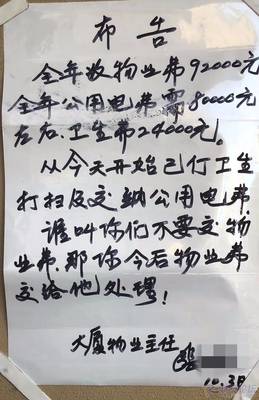 布告
全年收物业费92000元
全年公用电费需80000元
左右.卫生费24000元。
从今天开始己仃卫生
打扫及交纳公用电费,
谁叫你们不要交物
业费.那你今后物业费
交给他处理!
大厦物业主任
10.3日